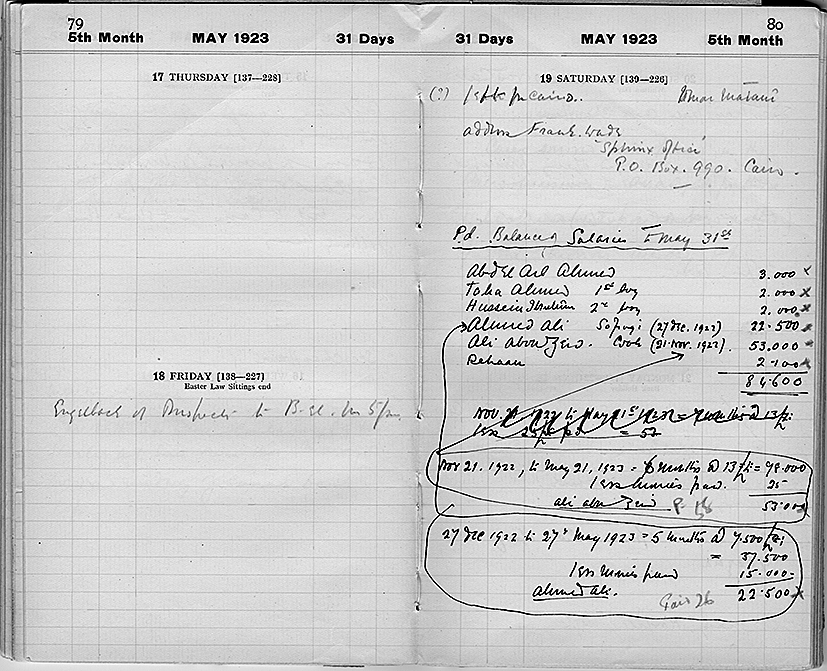 79
5th Month MAY 1923 31 Days
17 THURSDAY [137—228]
18 FRIDAY [138—227]
Easter Law Sittings end
to B. el. M 5
80
31 Days MAY 1923 5th Month
19 SATURDAY [139—226]
(?) left for Cairo..
address Frank. Wade
'Sphinx Office'
P.O. Box. 990. Cairo.
Pd. Balance of Salaries to May 31st
Abd El Aal Ahmed 3.000 x
Taha Ahmed 1st boy 2.000 x
Hussein Ibrahim 2nd boy 2.000 x
Ahmed Ali Sofragi (27 Dec. 1922) 22.500 x
Ali abou Zeid. Cook (21. Nov. 1922). 53.000 x
Rehaan 2.100 x
84.600
Nov. 21 1922 to May 1923 = months @ 13
less 25 pd = 52
Nov 21. 1922, to May 21, 1923 - 6 months @ 13 = 78.000
less monies paid. 25
ali abu Zeid 53.000 x
27 Dec 1922 to 27th May 1923 = 5 months @ 7.500
= 37.500
less monies paid 15.000
ahmed Ali. Paid 26 22.500 x